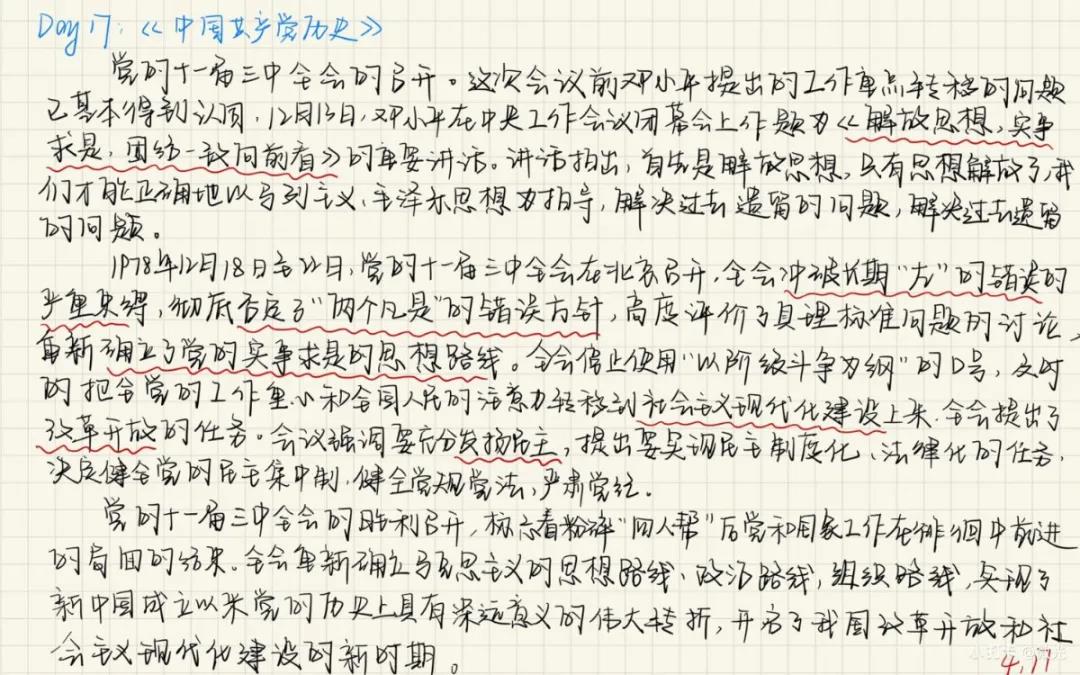 Day 17:《中国共产党历史》
党的十一届三中全会的召开。这次会议前邓小平提出的工作重点转移的问题
已基本得到认同,12月13日,邓小平在中央工作会议闭幕会上作题为《解放思想,实事
求是,团结一致向前看》的重要讲话。讲话指出,首先是解放思想,只有思想解放了,我
们才能正确地以马列主义、毛泽东思想为指导,解决过去遗留的问题,解决过去遗留
的问题。
1978年12月18日至22日,党的十一届三中全会在北京召开,全会冲破长期“左”的错误的
严重束缚,彻底否定了“两个凡是”的错误方针,高度评价了真理标准问题的讨论,
重新确立了党的实事求是的思想路线。全会停止使用“以阶级斗争为纲”的口号,及时
的把全党的工作重心和全国人民的注意力转移到社会主义现代化建设上来.全会提出了
改革开放的任务。会议强调要充分发扬民主,提出要实现民主制度化、法律化的任务,
决定健全党的民主集中制,健全党规党法,严肃党纪。
党的十一届三中全会的胜利召开,标志着粉碎“四人帮”后党和国家工作在徘徊中前进
的局面的结束.全会重新确立马克思主义的思想路线、政治路线,组织路线,实现了
新中国成立以来党的历史上具有深远意义的伟大转折,开启了我国改革开放和社
会主义现代化建设的新时期。
4.17